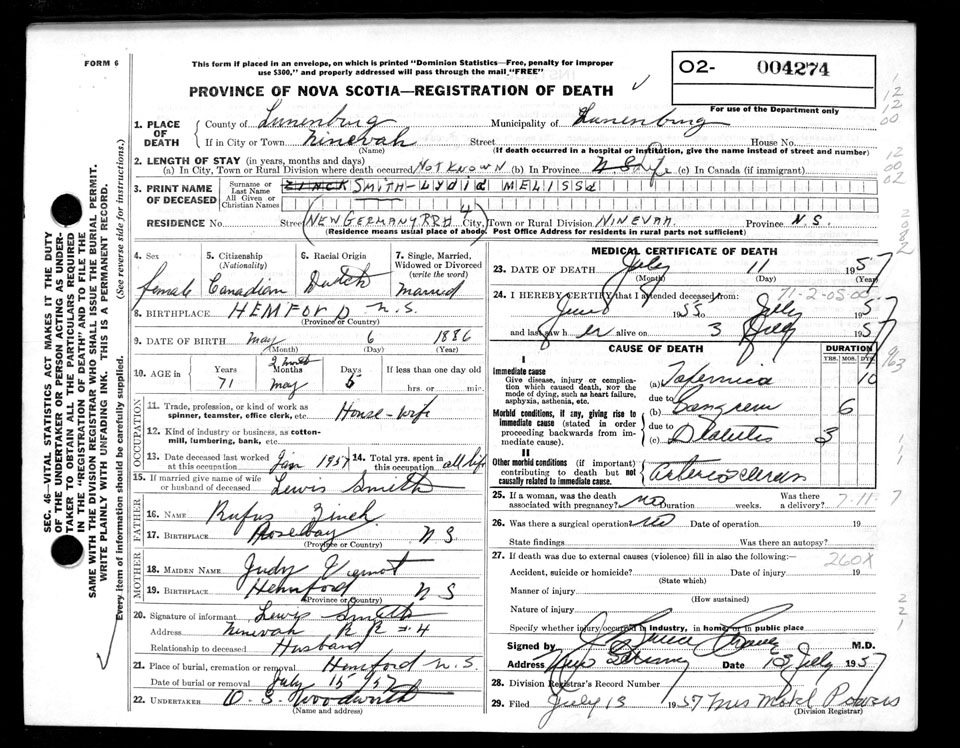 FORM 6
This form if placed in an envelope, on which is printed "Dominion Statistics—Free, penalty for improper
use $300," and properly addressed will pass through the mail "FREE"
PROVINCE OF NOVA SCOTIA—REGISTRATION OF DEATH
O2- 004274
For use of the Department only
1. PLACE OF DEATH
County of Lunenburg Municipality of Lunenburg
If in City or Town Ninevah Street House No.
(Name) (If death occurred in a hospital or institution, give the name instead of street and number)
2. LENGTH OF STAY (in years, months and days)
(a) In City, Town or Rural Division where death occurred NOT KNOWN (b) In Province N.S. Life (c) In Canada (if immigrant)
3. PRINT NAME OF DECEASED
Surname or Last Name ZINCK SMITH-LYDIA MELISSA
All Given or Christian Names
RESIDENCE No. Street (NEW GERMANY RR#4) City, Town or Rural Division NINEVAH. Province N.S.
(Residence means usual place of abode. Post Office Address for residents in rural parts not sufficient)
4. Sex
female
5. Citizenship
(Nationality)
Canadian
6. Racial Origin
Dutch
7. Single, Married,
Widowed or Divorced
(write the word)
Married
8. BIRTHPLACE HEMFORD N.S.
(Province or Country)
9. DATE OF BIRTH May 6 1886
(Month) (Day) (Year)
10. AGE in Years Months Days If less than one day old
71 2 months
May 5 hrs. or min.
OCCUPATION
11. Trade, profession, or kind of work as
spinner, teamster, office clerk, etc. House-wife
12. Kind of industry or business, as cotton-
mill, lumbering, bank, etc.
13. Date deceased last worked
at this occupation Jan 1957
14. Total yrs. spent in
this occupation all life
15. If married give name of wife
or husband of deceased Lewis Smith
FATHER
16. NAME Rufus Zinck
17. BIRTHPLACE Roseway N S
(Province or Country)
MOTHER
18. MAIDEN NAME Judy
19. BIRTHPLACE Hemford N S
(Province or Country)
20. Signature of informant Lewis Smith
Address Ninevah R R #4
Relationship to deceased Husband
21. Place of burial, cremation or removal Hemford N.S.
Date of burial or removal July 15 1957
22. UNDERTAKER O. S. Woodworth
(Name and address)
MEDICAL CERTIFICATE OF DEATH
23. DATE OF DEATH July 11 1957
(Month) (Day) (Year)
24. I HEREBY CERTIFY that I attended deceased from:
71-2-05-00
June 1955 to July 1957
and last saw her alive on 3 July 1957
CAUSE OF DEATH
DURATION
YRS. MOS. DYS.
I
Immediate cause
Give disease, injury or complica-
tion which caused death, not the
mode of dying, such as heart failure,
asphyxia, asthenia, etc.
(a) 10
due to
Morbid conditions, if any, giving rise to
immediate cause (stated in order
proceeding backwards from im-
mediate cause).
(b) Gangrene 6
due to
(c) Diabetes 3
II
Other morbid conditions (if important)
contributing to death but not
causally related to immediate cause.
25. If a woman, was the death
associated with pregnancy? no Duration weeks. Was there
a delivery?
7-11-7
26. Was there a surgical operation? no Date of operation 19
State findings Was there an autopsy?
27. If death was due to external causes (violence) fill in also the following:—
260X
Accident, suicide or homicide? Date of injury 19
(State which)
Manner of injury
(How sustained)
Nature of injury
Specify whether injury occurred in industry, in home, or in public place
Signed by M.D.
Address New Germany Date 13 July 1957
28. Division Registrar's Record Number
29. Filed July 13 1957 Mrs Powers
(Division Registrar)
SEC. 46—VITAL STATISTICS ACT MAKES IT THE DUTY
OF THE UNDERTAKER OR PERSON ACTING AS UNDER-
TAKER TO OBTAIN ALL THE PARTICULARS REQUIRED
IN THE "REGISTRATION OF DEATH" AND TO FILE THE
SAME WITH THE DIVISION REGISTRAR WHO SHALL ISSUE THE BURIAL PERMIT.
WRITE PLAINLY WITH UNFADING INK. THIS IS A PERMANENT RECORD.
Every item of information should be carefully supplied. (See reverse side for instructions.)